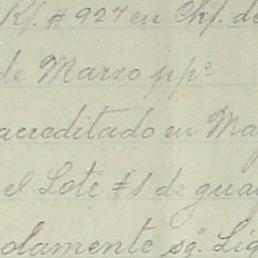 Rf. # 927 en Chf. de
de Marzo ppº
acreditado en Ma
el Lote #1 de gua
olamente sg. Lig